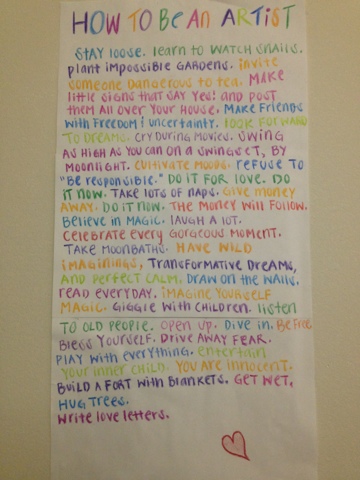 HOW TO BE AN ARTIST
STAY LOOSE. LEARN TO WATCH SNAILS.
PLANT IMPOSSIBLE GARDENS. INVITE
SOMEONE DANGEROUS TO TEA. MAKE
LITTLE SIGNS THAT SAY YES! AND POST
THEM ALL OVER YOUR HOUSE. MAKE FRIENDS
WITH FREEDOM & UNCERTAINTY. LOOK FORWARD
TO DREAMS. CRY DURING MOVIES. SWING
AS HIGH AS YOU CAN ON A SWINGSET, BY
MOONLIGHT. CULTIVATE MOODS. REFUSE TO
"BE RESPONSIBLE." DO IT FOR LOVE. DO
IT NOW. TAKE LOTS OF NAPS. GIVE MONEY
AWAY. DO IT NOW. THE MONEY WILL FOLLOW.
BELIEVE IN MAGIC. LAUGH A LOT.
CELEBRATE EVERY GORGEOUS MOMENT.
TAKE MOONBATHS. HAVE WILD
IMAGININGS, TRANSFORMATIVE DREAMS,
AND PERFECT CALM. DRAW ON THE WALLS.
READ EVERYDAY. IMAGINE YOURSELF
MAGIC. GIGGLE WITH CHILDREN. LISTEN
TO OLD PEOPLE. OPEN UP. DIVE IN. BE FREE.
BLESS YOURSELF. DRIVE AWAY FEAR.
PLAY WITH EVERYTHING. ENTERTAIN
YOUR INNER CHILD. YOU ARE INNOCENT.
BUILD A FORT WITH BLANKETS. GET WET.
HUG TREES.
WRITE LOVE LETTERS.